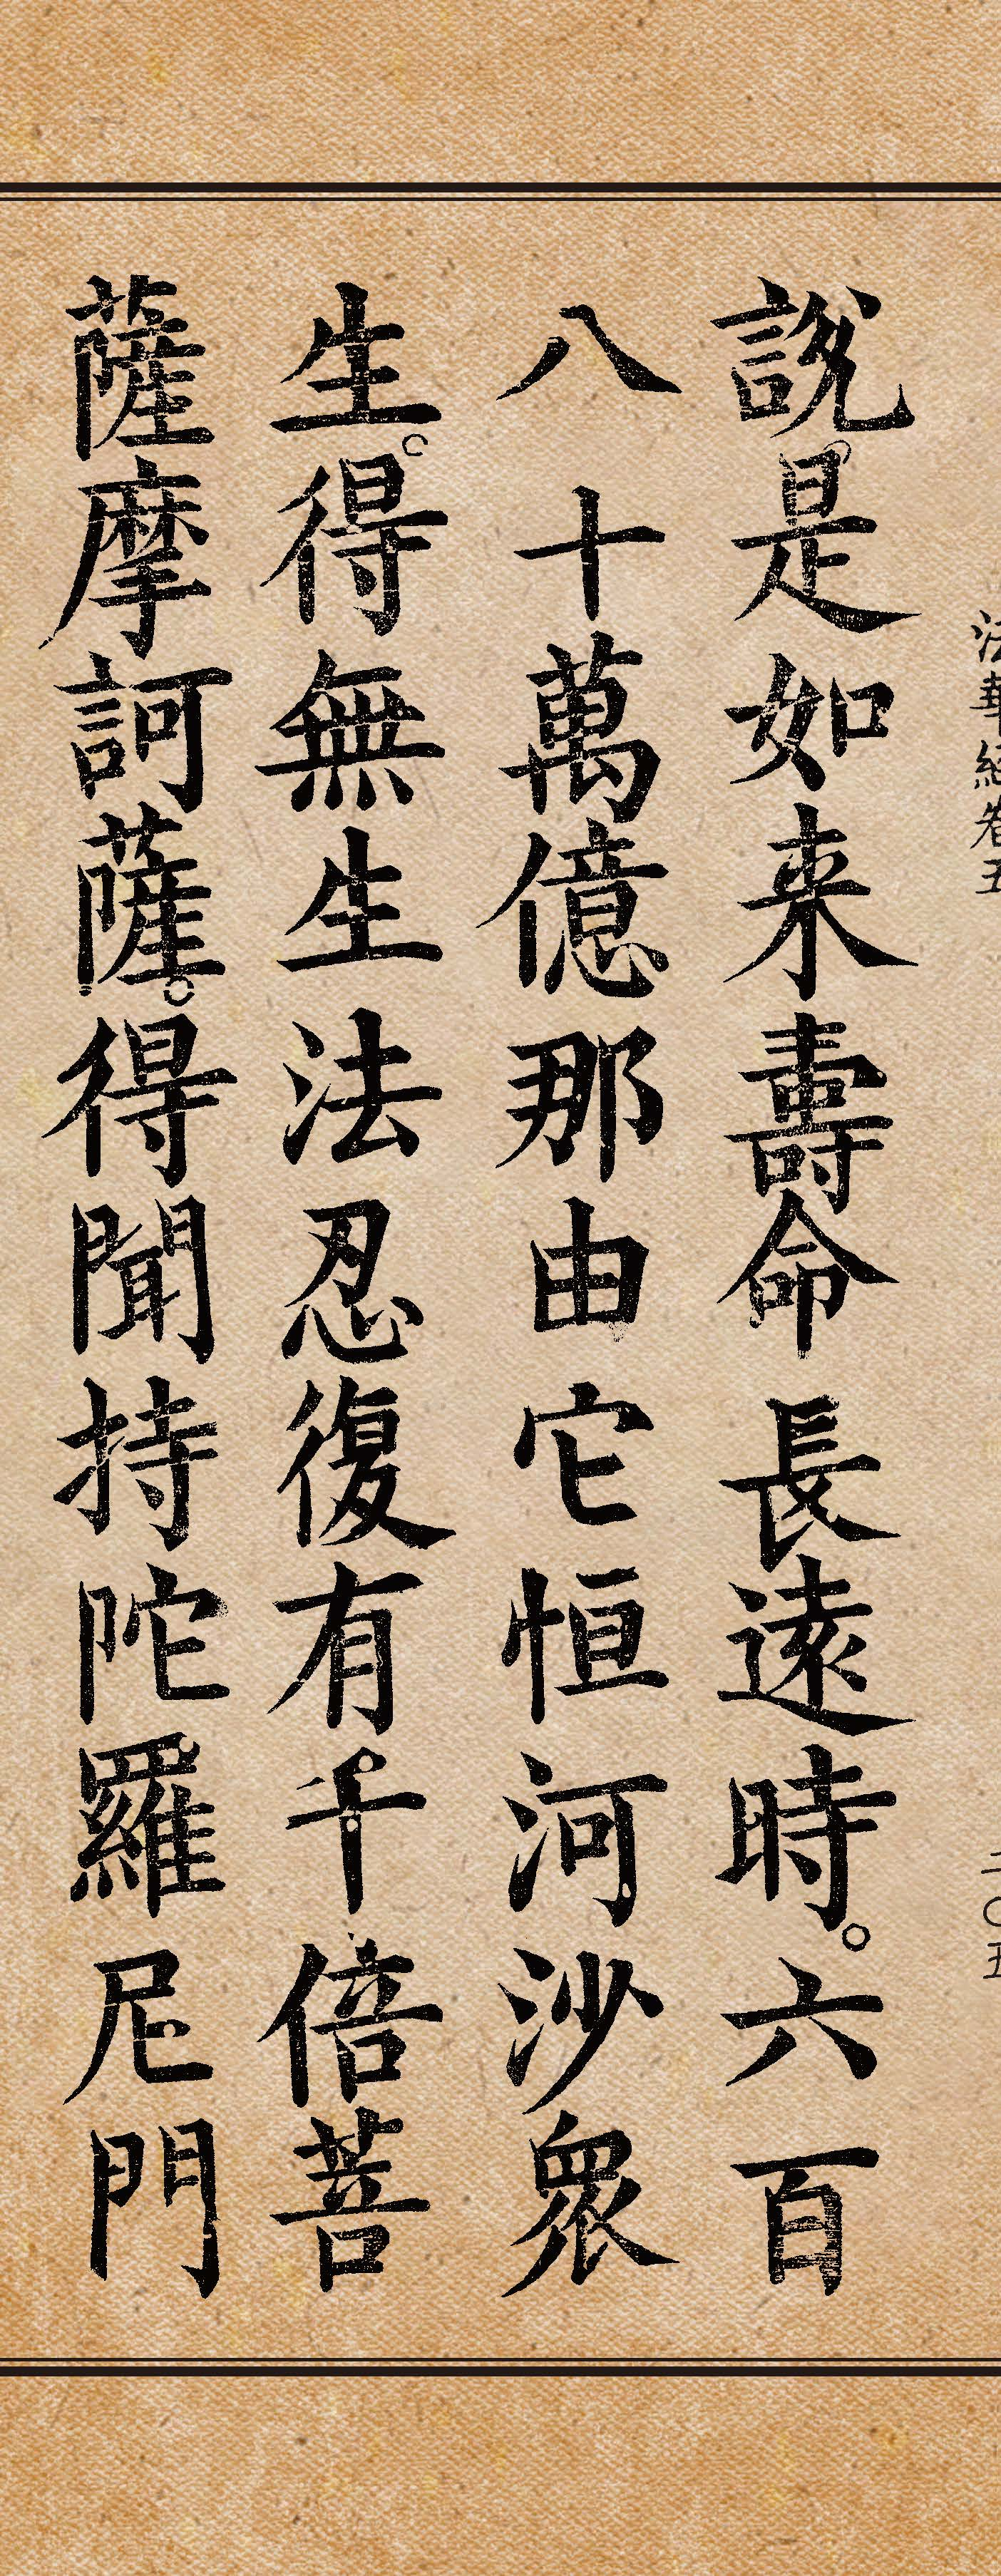 法華經卷五
二〇五
說是如来壽命長遠時。六百
八十萬億那由它恒河沙眾
生。得無生法忍復有千倍菩
薩摩訶薩。得聞持陀羅尼門